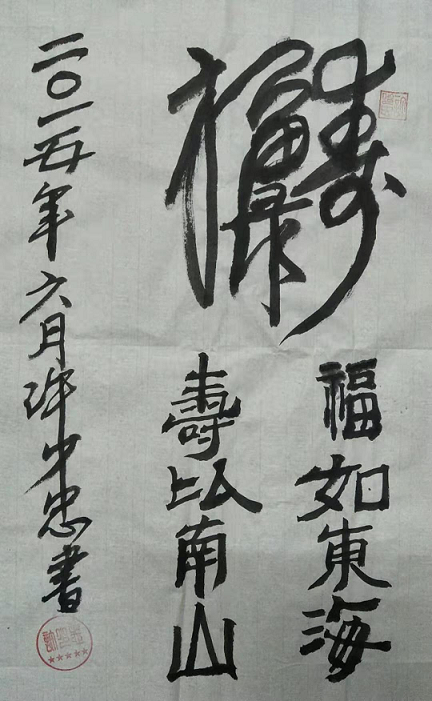 福如東海
壽比南山
二〇一五年六月 忠書